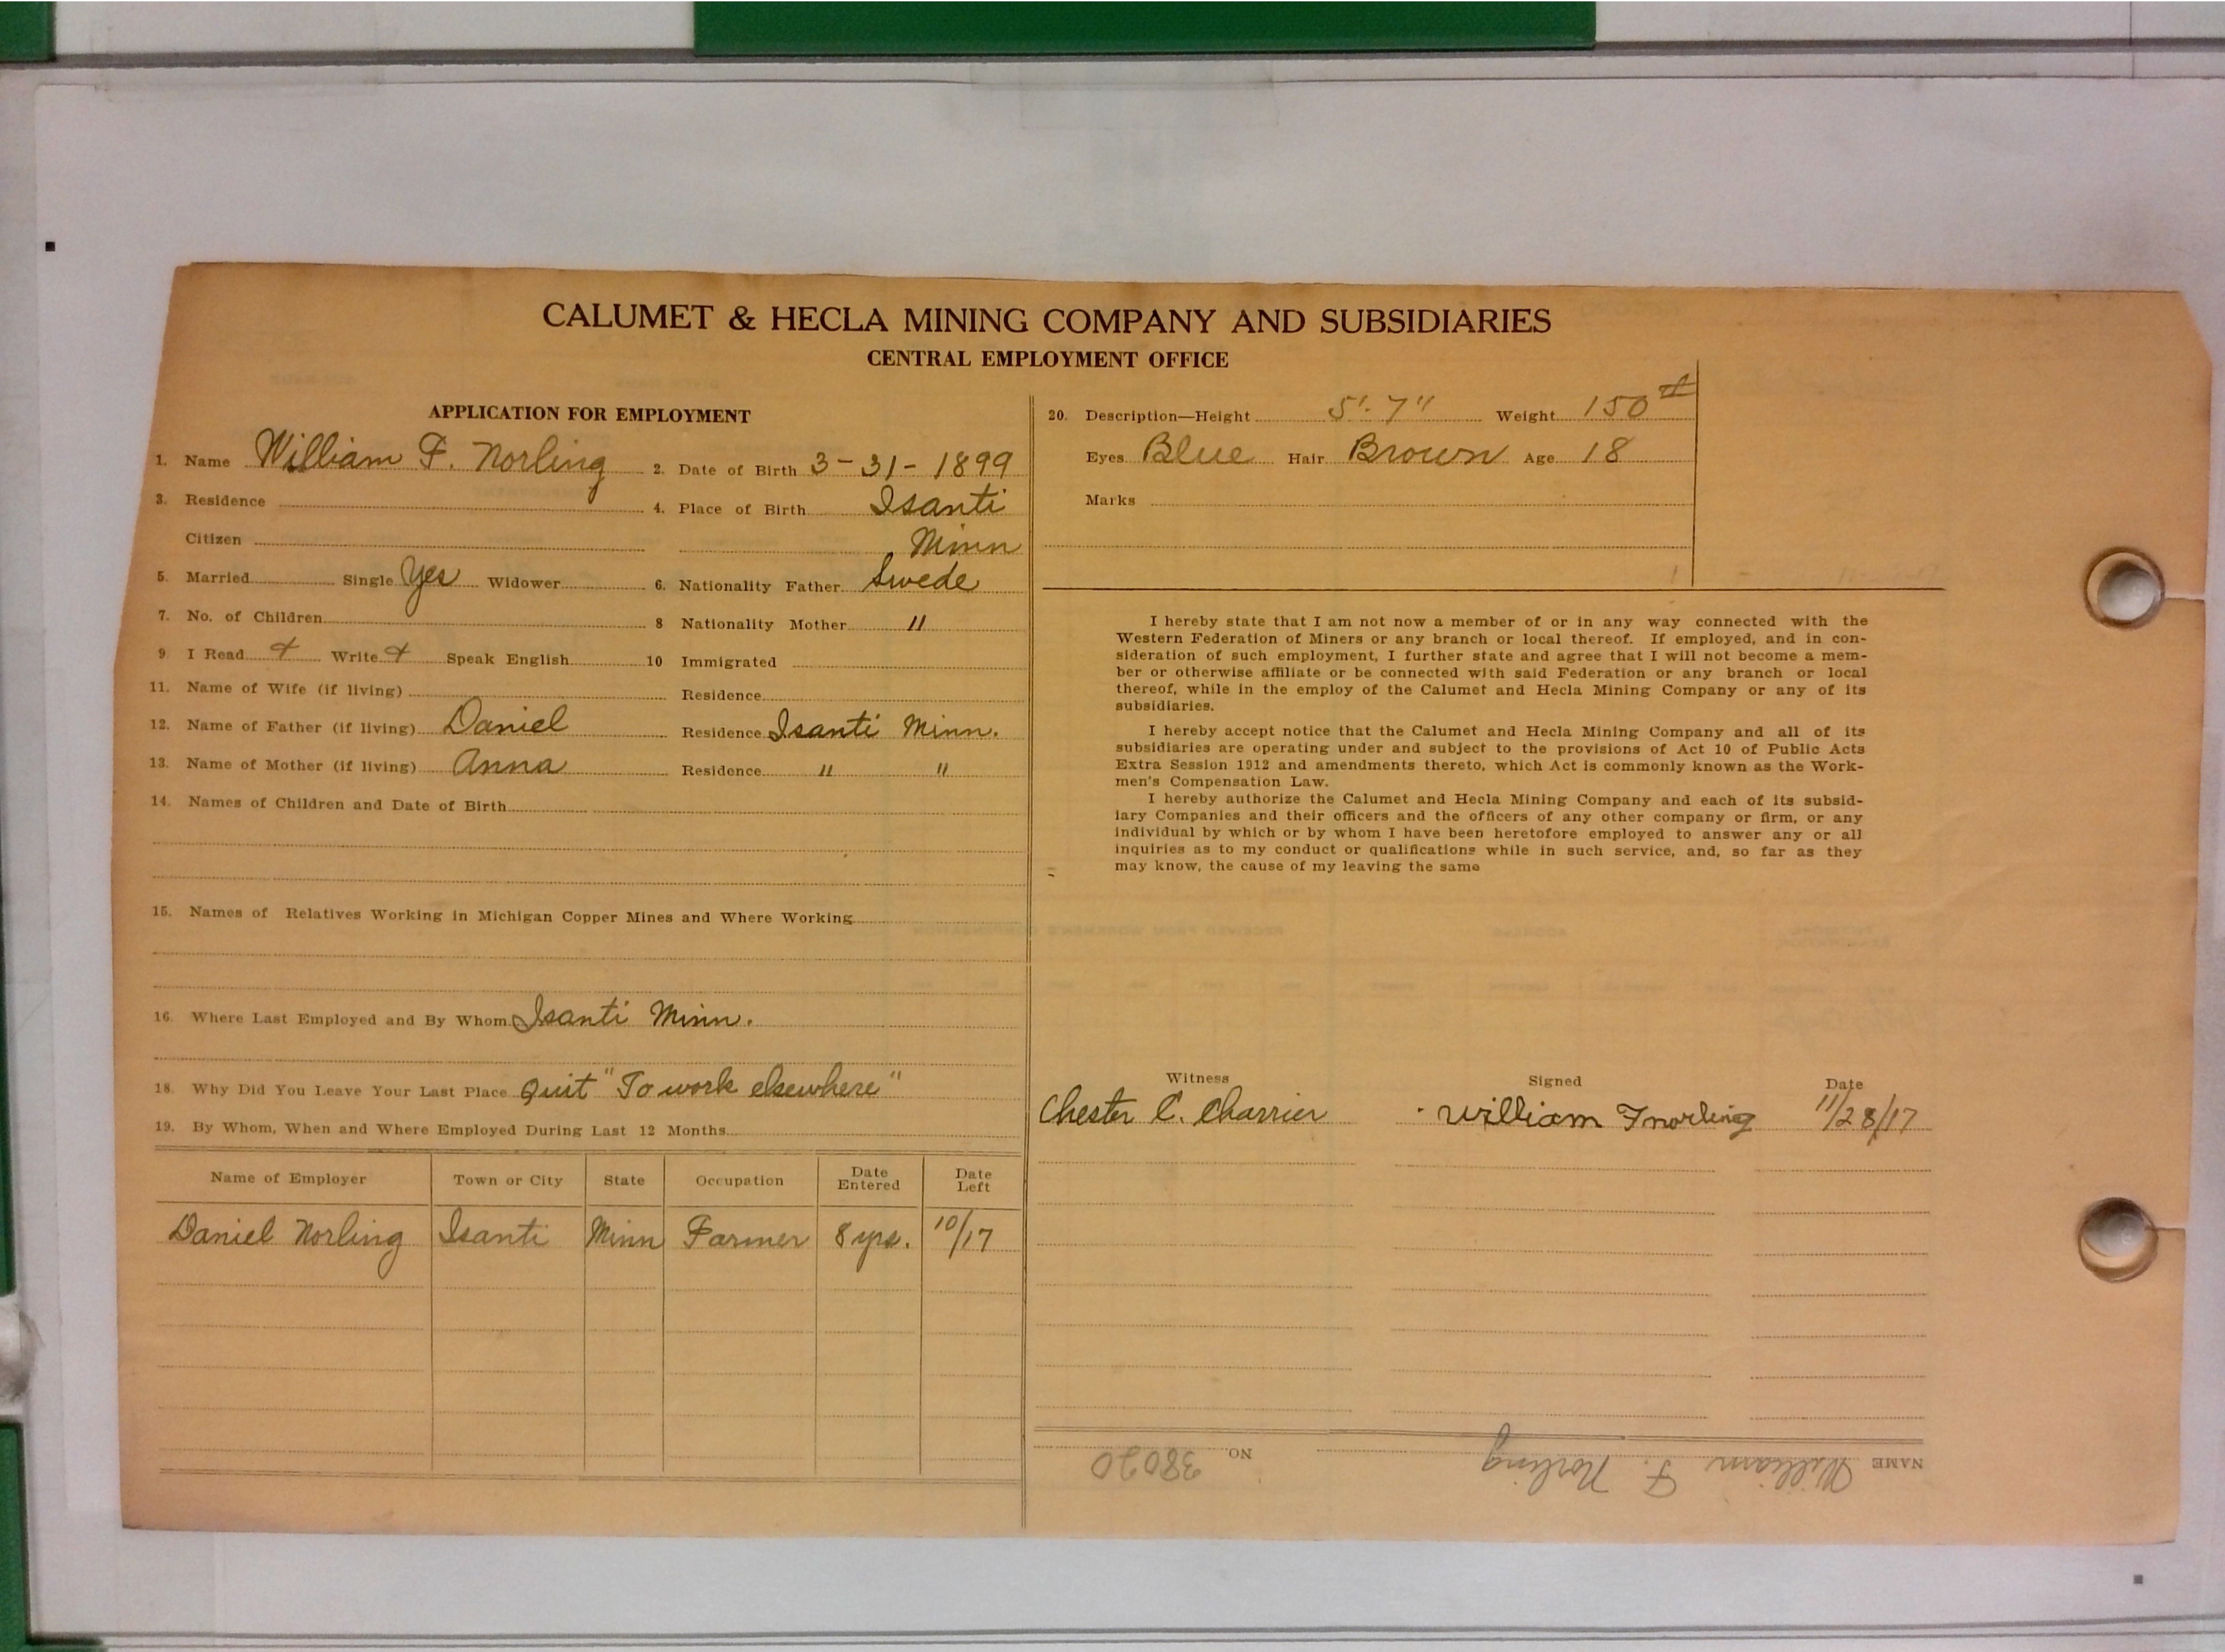 CALUMET & HECLA MINING COMPANY AND SUBSIDIARIES
CENTRAL EMPLOYMENT OFFICE
APPLICATION FOR EMPLOYMENT
1. Name William F. Norling 2. Date of Birth 3-31-1899
3. Residence 4. Place of Birth Isanti
Citizen Minn
5. Married Single Yes Widower 6. Nationality Father Swede
7. No. of Children 8 Nationality Mother "
9 I Read + Write + Speak English 10 Immigrated
11. Name of Wife (if living) Residence
12. Name of Father (if living) Daniel Residence Isanti Minn.
13. Name of Mother (if living) Anna Residence " "
14. Names of Children and Date of Birth
15. Names of Relatives Working in Michigan Copper Mines and Where Working
16. Where Last Employed and By Whom Isanti Minn.
18. Why Did You Leave Your Last Place Quit "To work elsewhere"
19. By Whom, When and Where Employed During Last 12 Months
Name of Employer Town or City State Occupation Date Entered Date Left
Daniel Norling Isanti Minn Farmer 8 yrs. 10/17
20. Description—Height 5'-7" Weight 150#
Eyes Blue Hair Brown Age 18
Marks
I hereby state that I am not now a member of or in any way connected with the
Western Federation of Miners or any branch or local thereof. If employed, and in con-
sideration of such employment, I further state and agree that I will not become a mem-
ber or otherwise affiliate or be connected with said Federation or any branch or local
thereof, while in the employ of the Calumet and Hecla Mining Company or any of its
subsidiaries.
I hereby accept notice that the Calumet and Hecla Mining Company and all of its
subsidiaries are operating under and subject to the provisions of Act 10 of Public Acts
Extra Session 1912 and amendments thereto, which Act is commonly known as the Work-
men's Compensation Law.
I hereby authorize the Calumet and Hecla Mining Company and each of its subsid-
iary Companies and their officers and the officers of any other company or firm, or any
individual by which or by whom I have been heretofore employed to answer any or all
inquiries as to my conduct or qualifications while in such service, and, so far as they
may know, the cause of my leaving the same
Witness Signed Date
Chester C. Charrier William F Norling 11/28/17
NAME William F. Norling NO 38020